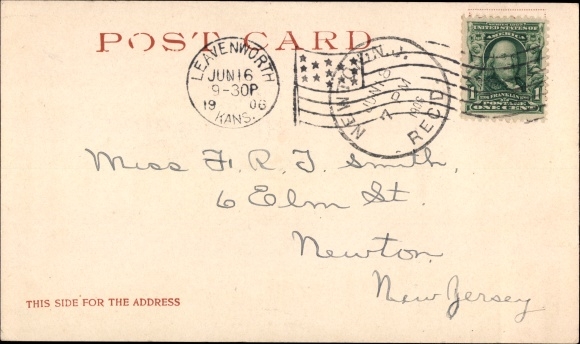 POST CARD
LEAVENWORTH
JUN 16
9-30P
1906
KANS.
NEWTON, N.J.
JUN 18
7 PM
1906
REC'D
UNITED STATES OF AMERICA
FRANKLIN
1 POSTAGE 1
ONE CENT
Miss F. R. T. Smith,
6 Elm St.
Newton
New Jersey
THIS SIDE FOR THE ADDRESS